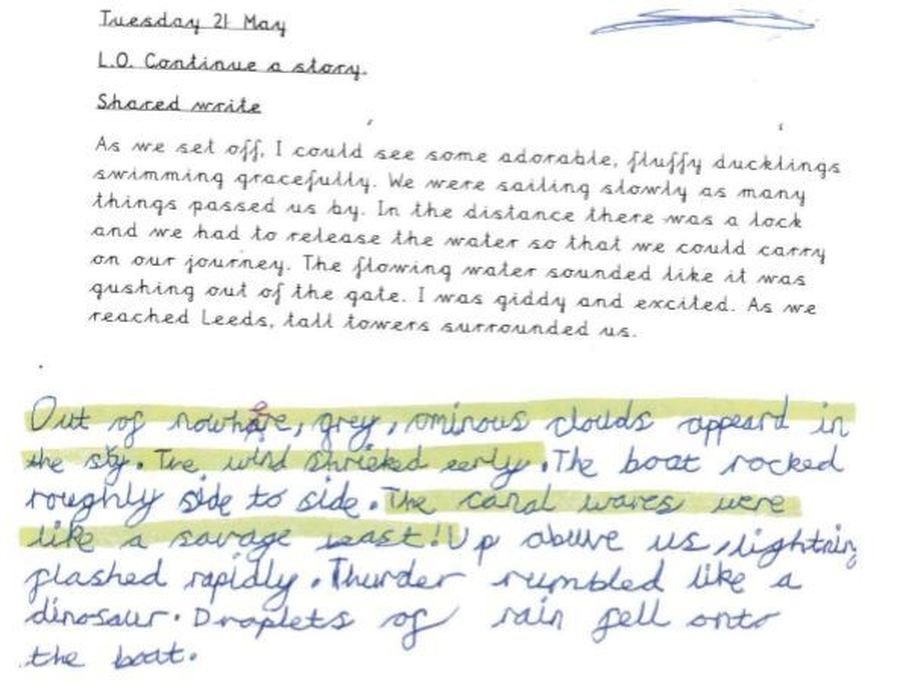 Tuesday 21 May
L.O. Continue a story.
Shared write
As we set off, I could see some adorable, fluffy ducklings
swimming gracefully. We were sailing slowly as many
things passed us by. In the distance there was a lock
and we had to release the water so that we could carry
on our journey. The flowing water sounded like it was
gushing out of the gate. I was giddy and excited. As we
reached Leeds, tall towers surrounded us.
Out of nowhere, grey, ominous clouds appeard in
the sky. The wind shrieked eerly. The boat rocked
roughly side to side. The canal waves were
like a savage beast! Up above us, lightning
flashed rapidly. Thunder rumbled like a
dinosaur. Droplets of rain fell onto
the boat.